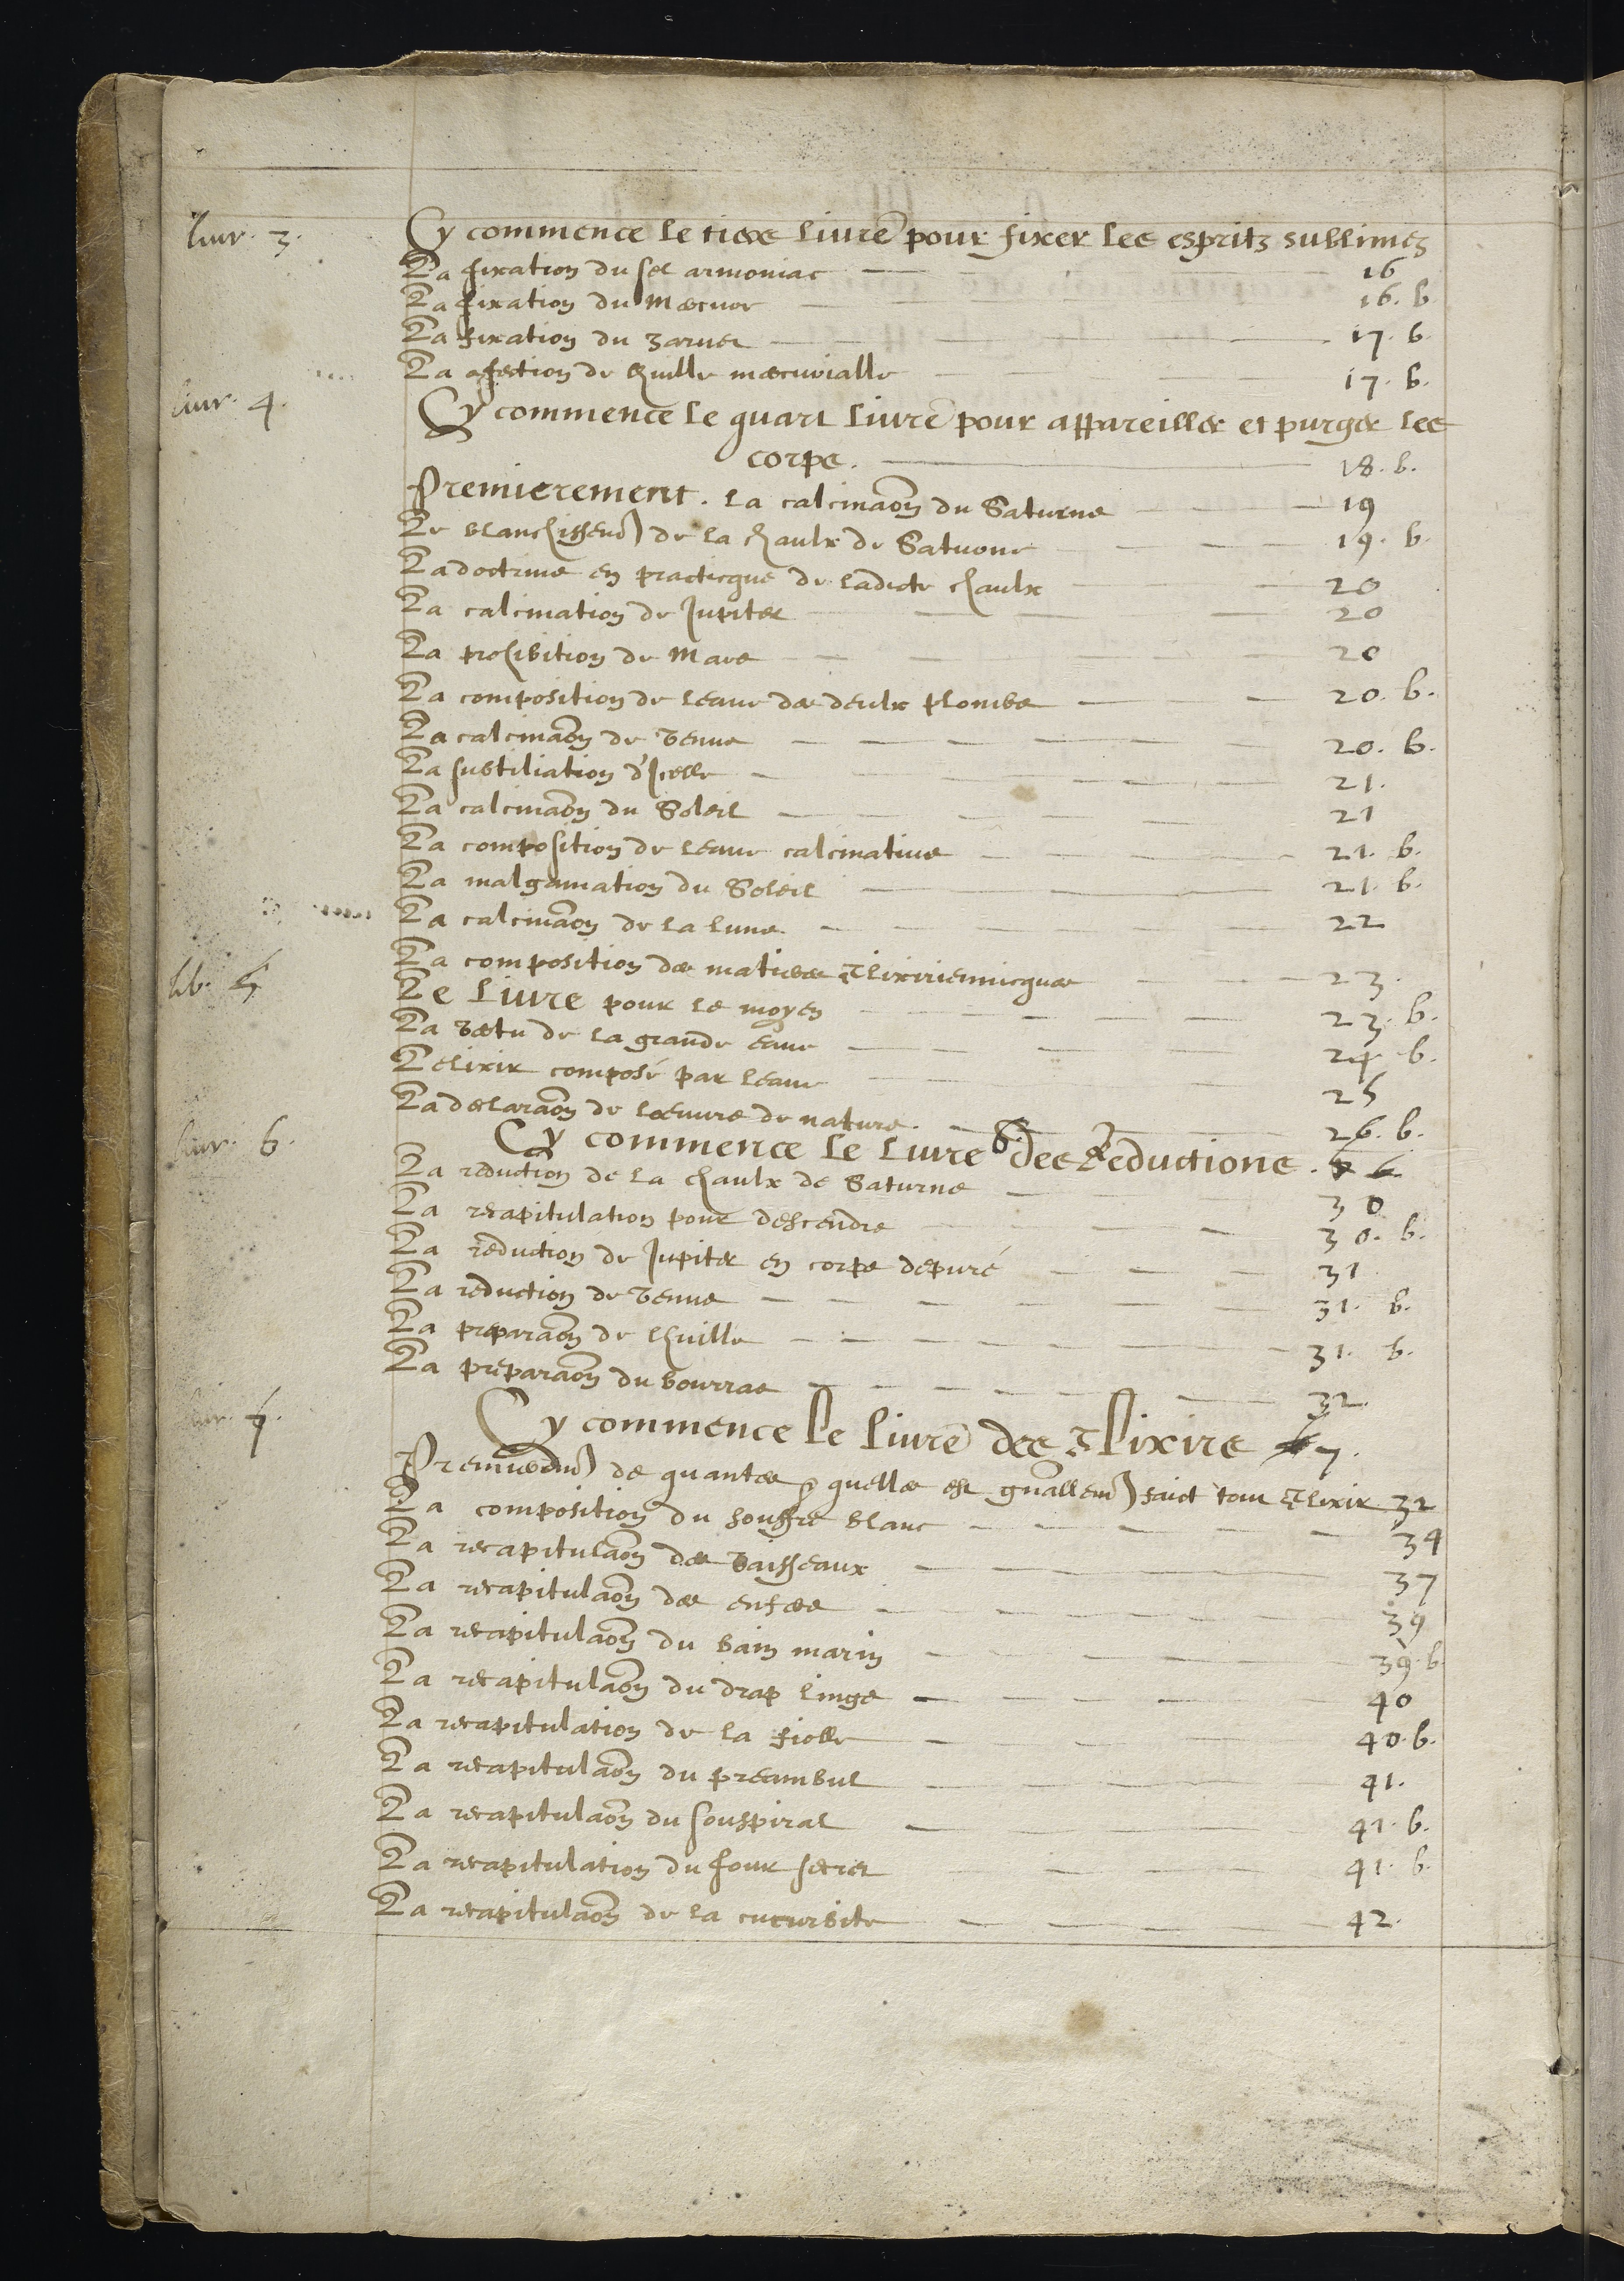 liur. 3. Cy commence le tiers liure pour fixer les espritz sublimez
La fixation du sel armoniac 16
La fixation du Mercure 16. b
La fixation du zarnet 17. b.
La afection de lhuille mercurialle 17. b.
liur. 4. Cy commence le quart liure pour appareiller et purger les
corps. 18. b.
Premierement. la calcinaon du Saturne 19
Le blanchissemt de la chaulx de Saturne 19. b.
La doctrine en practicque de ladicte chaulx 20
La calcination de Jupiter 20
La prohibition de Mars 20
La composition de leaue des deulx plombs 20. b.
La calcinaon de Venus 20. b.
La subtiliation d'Icelle 21.
La calcinaon du Soleil 21
La composition de leaue calcinatiue 21. b.
La malgamation du Soleil 21. b.
La calcinaon de la lune 22
La composition des matieres Elixiriennicques 23.
lib. 5 Le Liure pour le moyen 23. b.
La Vertu de la grande eaue 24. b.
Lelixir composé par leaue 25
La declaraon de loeuure de nature. 26. b.
liur. 6. Cy commence le Liure 6. des Reductions.
La reduction de la chaulx de Saturne 30
La recapitulation pour descendre 30. b.
La reduction de Jupiter en corps depuré 31
La reduction de Venus 31. b.
La preparaon de lhuille 31. b.
La preparaon du bourras 32.
liur. 7. Cy commence le liure des Elixirs 7.
Premieremt de quantes & quelles est gnallemt faict tout Elixir 32
La composition du souffre blanc 34
La recapitulaon des Vaisseaux 37
La recapitulaon des enfers 39
La recapitulaon du bain marin 39. b
La recapitulaon du drap linge 40
La recapitulation de la fiolle 40. b.
La recapitulaon du preambul 41.
La recapitulaon du souspiral 41. b.
La recapitulation du four secret 41. b
La recapitulaon de la cucurbite 42.